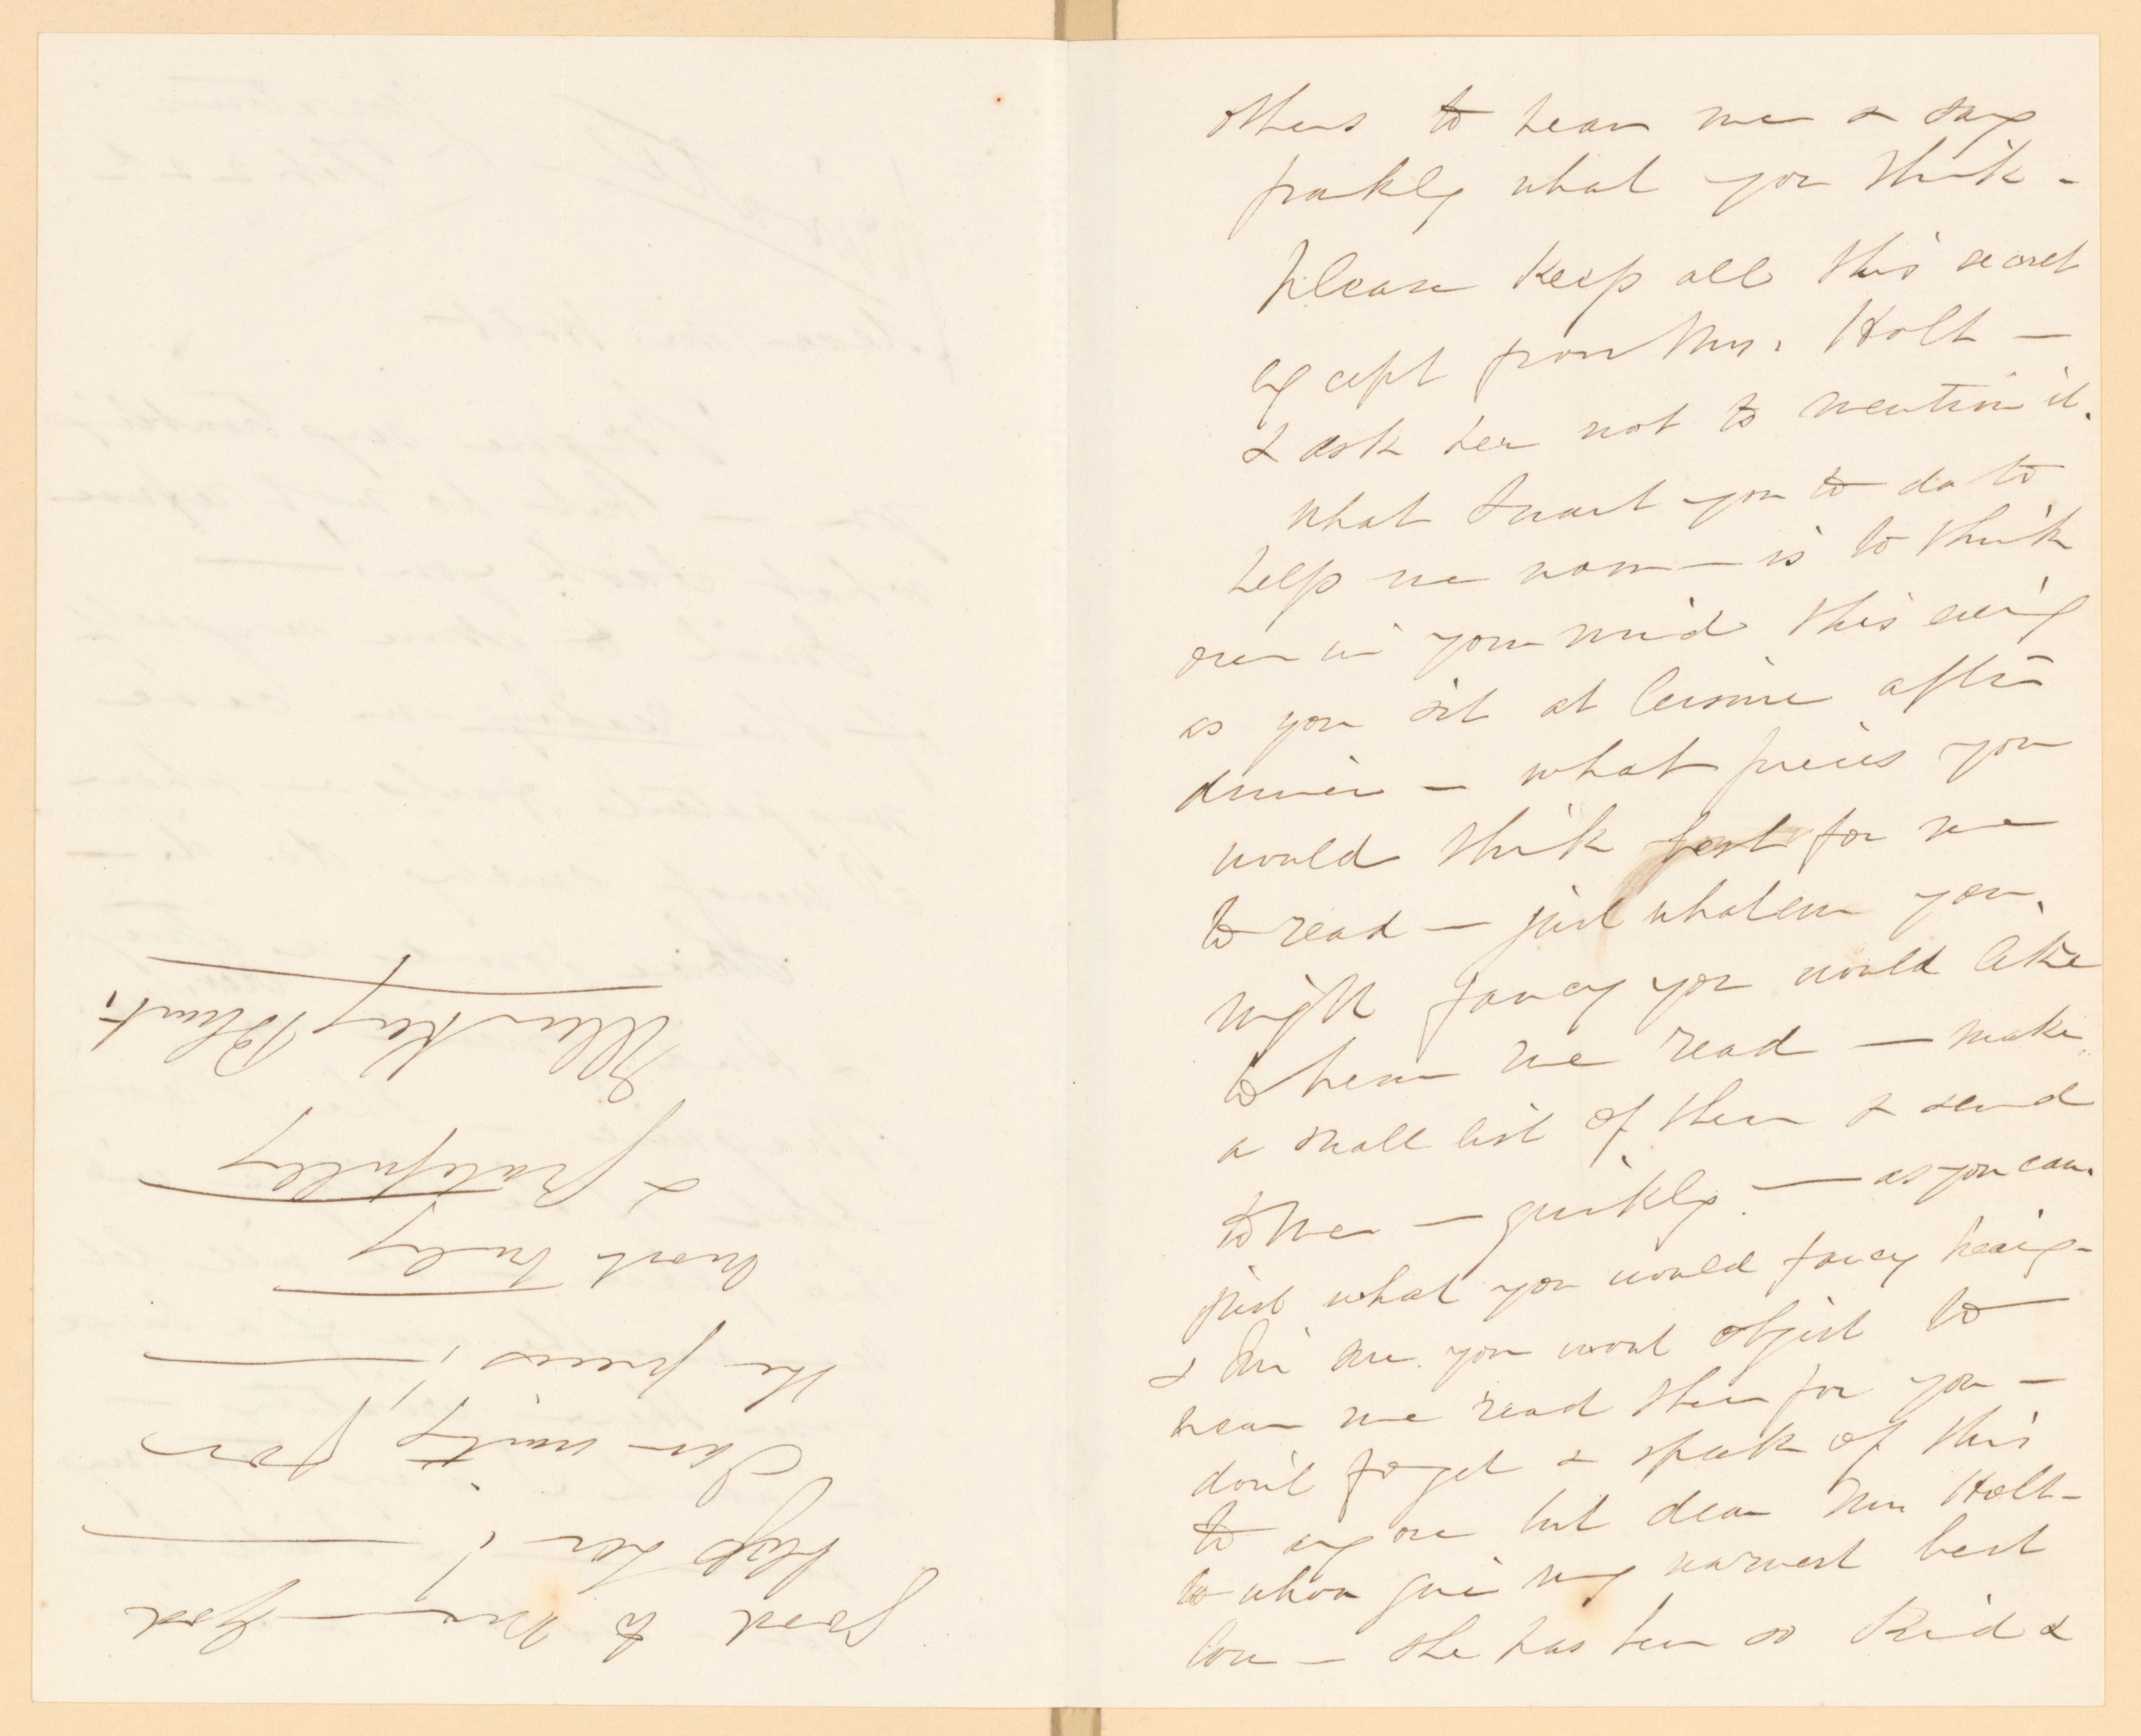 others to hear me & say
frankly what you think -
please keep all this secret
except from Mrs. Holt —
& ask her not to mention it.
What I want you to do to
help me now — is to think
over in your mind this evening
as you sit at leisure after
dinner — what pieces you
would think best for me
to read — just whatever you
might fancy you would like
to hear me read — make
a small list of them & send
to me — quickly — as you can.
just what you would fancy hearing -
& I'm sure you wont object to
hear me read them for you —
don't forget & speak of this
to any one but dear Mrs Holt -
to whom give my warmest best
love — she has been so kind &
good to me — God
bless her! —
I am waiting for
the pieces! —
Most truly
& gratefully
Ellen Key Blunt.